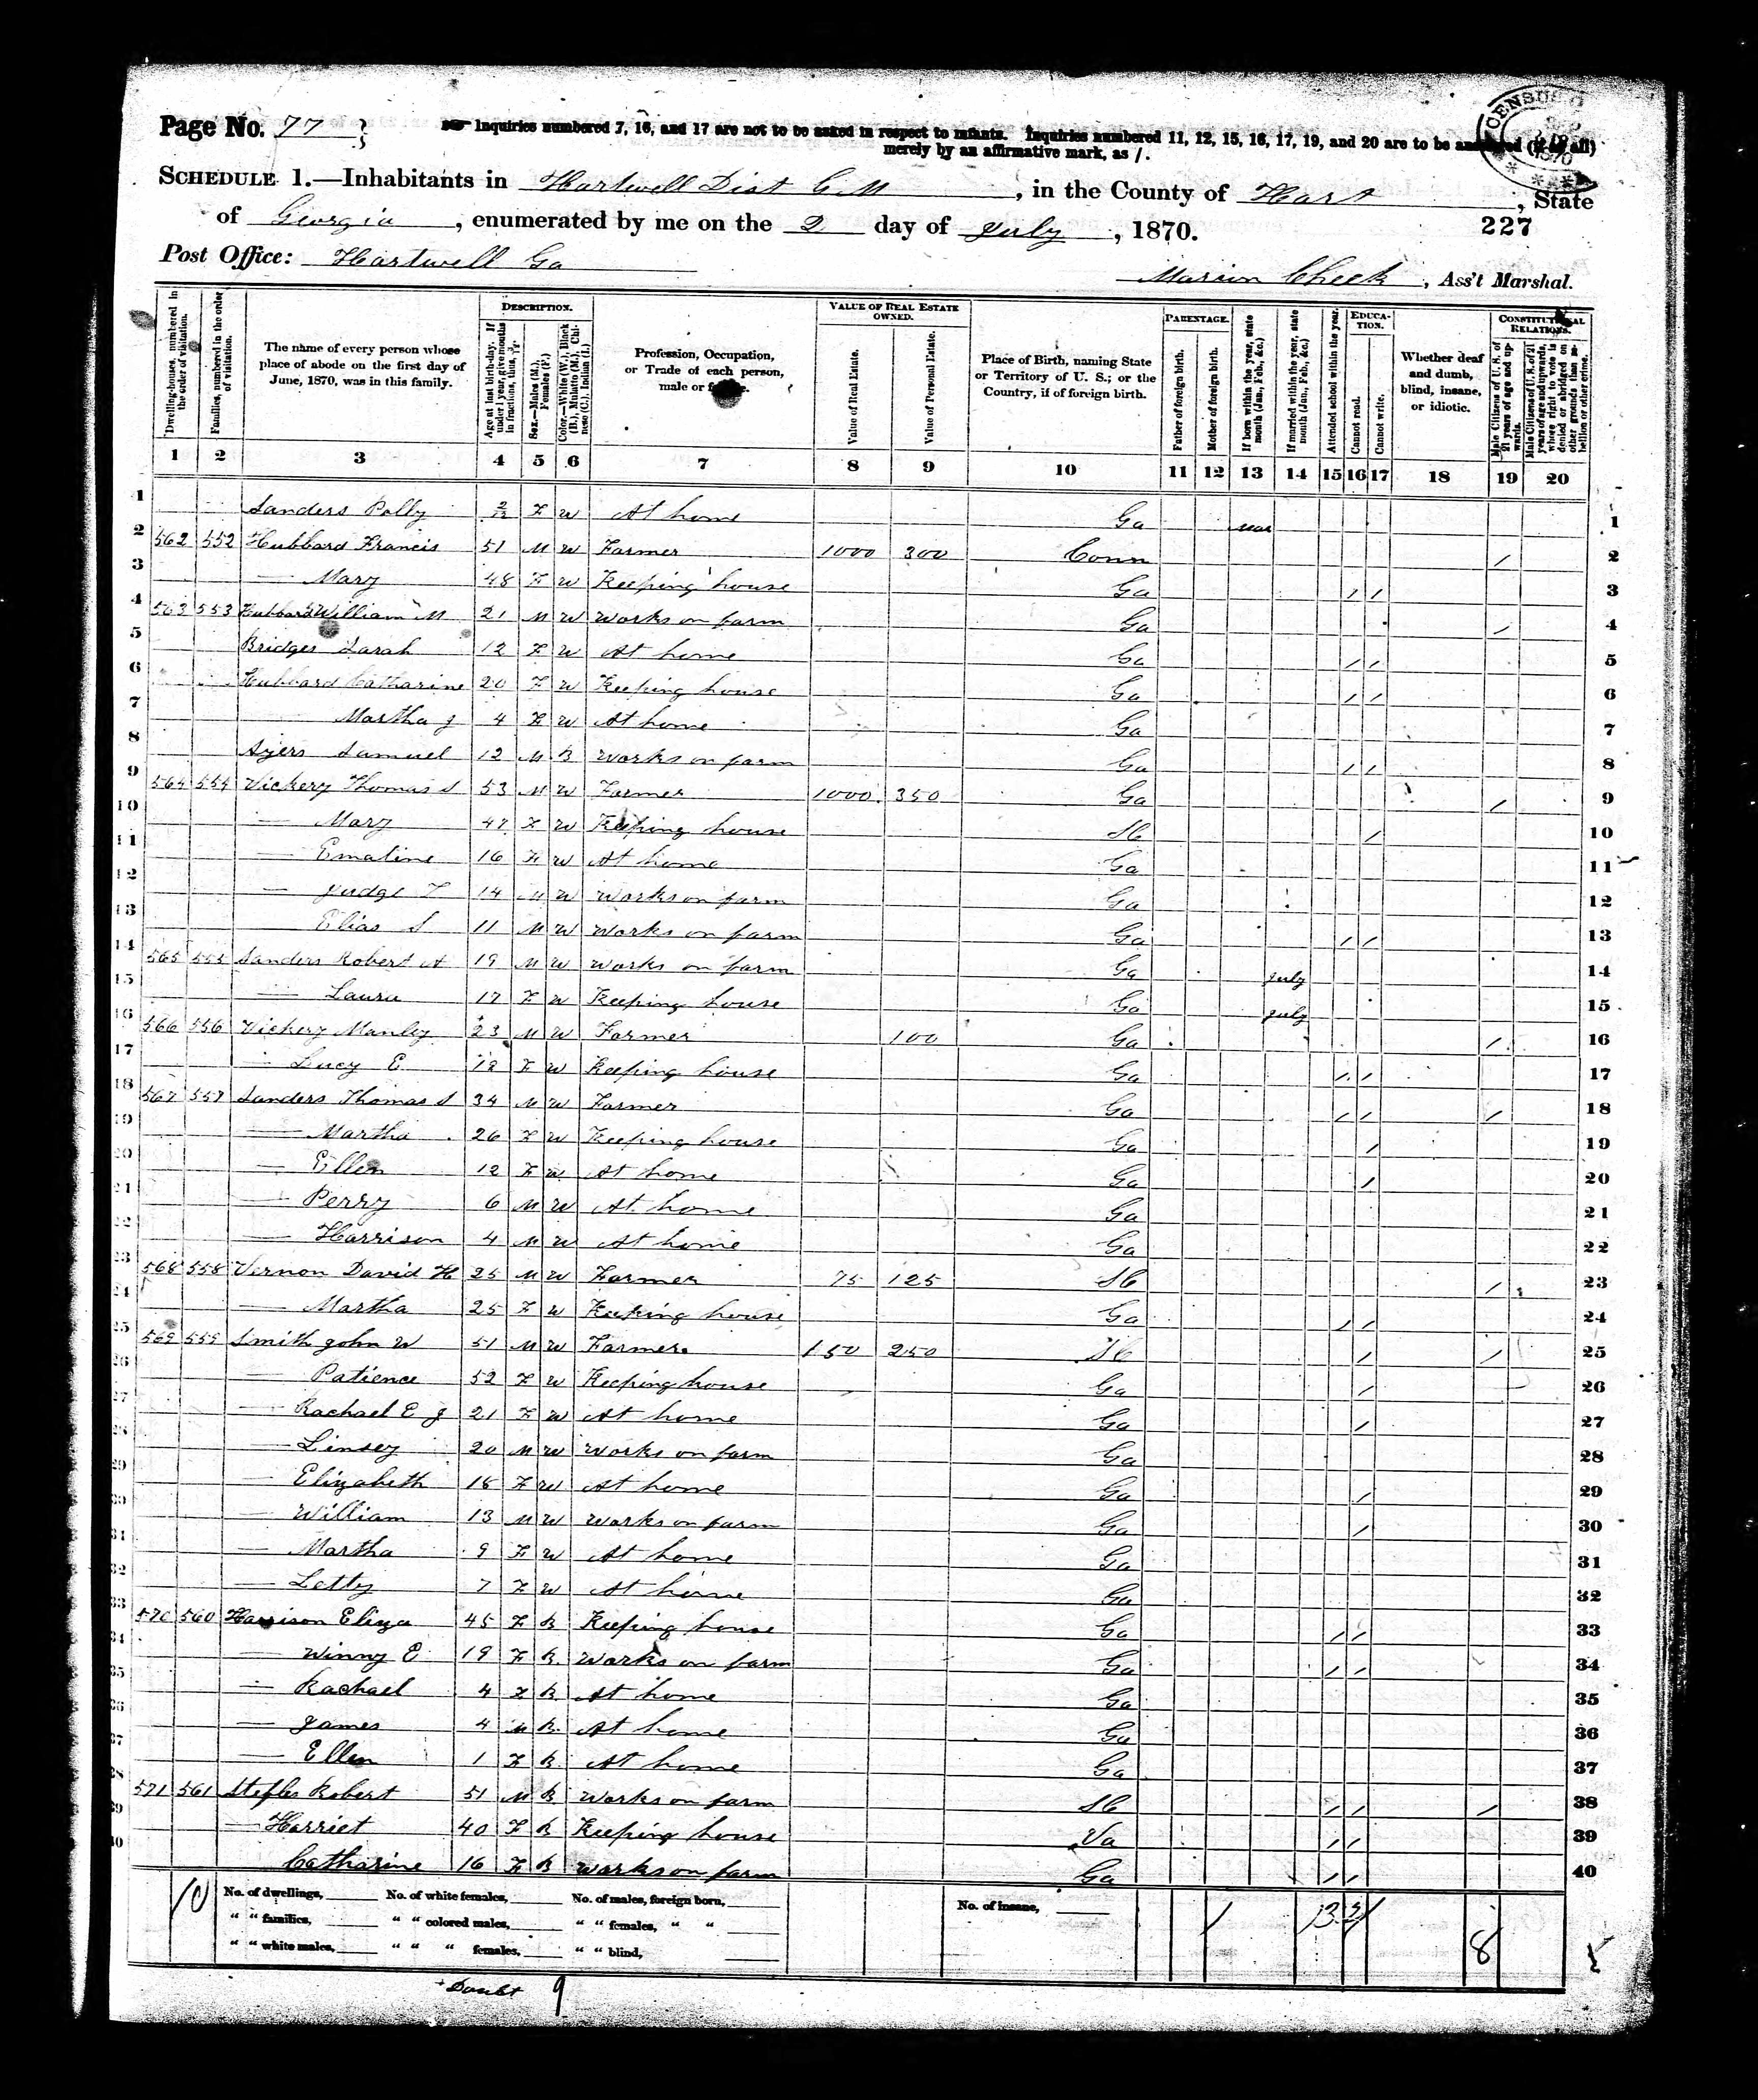 Page No. 77
Inquiries numbered 7, 16, and 17 are not to be asked in respect to infants. Inquiries numbered 11, 12, 15, 16, 17, 19, and 20 are to be answered (if at all)
merely by an affirmative mark, as /.
CENSUS
1870
SCHEDULE 1.—Inhabitants in Hartwell Dist G. M, in the County of Hart, State
of Georgia, enumerated by me on the 2 day of July, 1870.
227
Post Office: Hartwell Ga
Marion Cheek, Ass't Marshal.
Dwelling-houses, numbered in the order of visitation.
Families, numbered in the order of visitation.
The name of every person whose place of abode on the first day of June, 1870, was in this family.
DESCRIPTION.
Age at last birth-day. If under 1 year, give months in fractions, thus, 3/12
Sex.—Males (M.), Females (F.)
Color.—White (W.), Black (B.), Mulatto (M.), Chinese (C.), Indian (I.)
Profession, Occupation, or Trade of each person, male or
VALUE OF REAL ESTATE OWNED.
Value of Real Estate.
Value of Personal Estate.
Place of Birth, naming State or Territory of U. S.; or the Country, if of foreign birth.
PARENTAGE.
Father of foreign birth.
Mother of foreign birth.
If born within the year, state month (Jan, Feb, &c.)
If married within the year, state month (Jan, Feb, &c.)
Attended school within the year.
EDUCATION.
Cannot read.
Cannot write.
Whether deaf and dumb, blind, insane, or idiotic.
CONSTITUTIONAL RELATIONS.
Male Citizens of U. S. of 21 years of age and upwards.
Male Citizens of U. S. of 21 years of age and upwards, whose right to vote is denied or abridged on other grounds than rebellion or other crime.
1 2 3 4 5 6 7 8 9 10 11 12 13 14 15 16 17 18 19 20
1 Sanders Polly 2/12 F W At home Ga Mar 1
2 562 552 Hubbard Francis 51 M W Farmer 1000 300 Conn / 2
3 — Mary 48 F W Keeping house Ga / / 3
4 563 553 Hubbard William M 21 M W Works on farm Ga / 4
5 Bridges Sarah 12 F W At home Ga / / 5
6 Hubbard Catharine 20 F W Keeping house Ga / / 6
7 Martha J 4 F W At home Ga 7
8 Ayers Samuel 12 M B Works on farm Ga / / 8
9 564 554 Vickery Thomas S 53 M W Farmer 1000 350 Ga / 9
10 — Mary 47 F W Keeping house SC / 10
11 — Emaline 16 F W At home Ga 11
12 — Judge T 14 M W Works on farm Ga 12
13 Elias S 11 M W Works on farm Ga / / 13
14 565 555 Sanders Robert A 19 M W Works on farm Ga July 14
15 — Laura 17 F W Keeping house Ga July 15
16 566 556 Vickery Manley 23 M W Farmer 100 Ga / 16
17 — Lucy E 18 F W Keeping house Ga / / 17
18 567 557 Sanders Thomas S 34 M W Farmer Ga / / / 18
19 — Martha 26 F W Keeping house Ga / 19
20 — Ellen 12 F W At home Ga / 20
21 — Perry 6 M W At home Ga 21
22 — Harrison 4 M W At home Ga 22
23 568 558 Vernon David H 25 M W Farmer 75 125 SC / 23
24 — Martha 25 F W Keeping house Ga / / 24
25 569 559 Smith John W 51 M W Farmer 150 250 SC / / 25
26 — Patience 52 F W Keeping house Ga / 26
27 — Rachael E J 21 F W At home Ga / 27
28 — Linsey 20 M W Works on farm Ga 28
29 — Elizabeth 18 F W At home Ga / 29
30 — William 13 M W Works on farm Ga / 30
31 — Martha 9 F W At home Ga 31
32 — Letty 7 F W At home Ga 32
33 570 560 Harrison Eliza 45 F B Keeping house Ga / / 33
34 — Winny E 19 F B Works on farm Ga / / 34
35 — Rachael 4 F B At home Ga 35
36 — James 4 M B At home Ga 36
37 — Ellen 1 F B At home Ga 37
38 571 561 Robert 51 M B Works on farm SC / / / 38
39 — Harriet 40 F B Keeping house Va / / 39
40 Catharine 16 F B Works on farm Ga / / 40
10 No. of dwellings, No. of white females, No. of males, foreign born, No. of insane, /
" " families, " " colored males, " " females, " "
" " white males, " " " females, " " blind,
8
Doubt 9